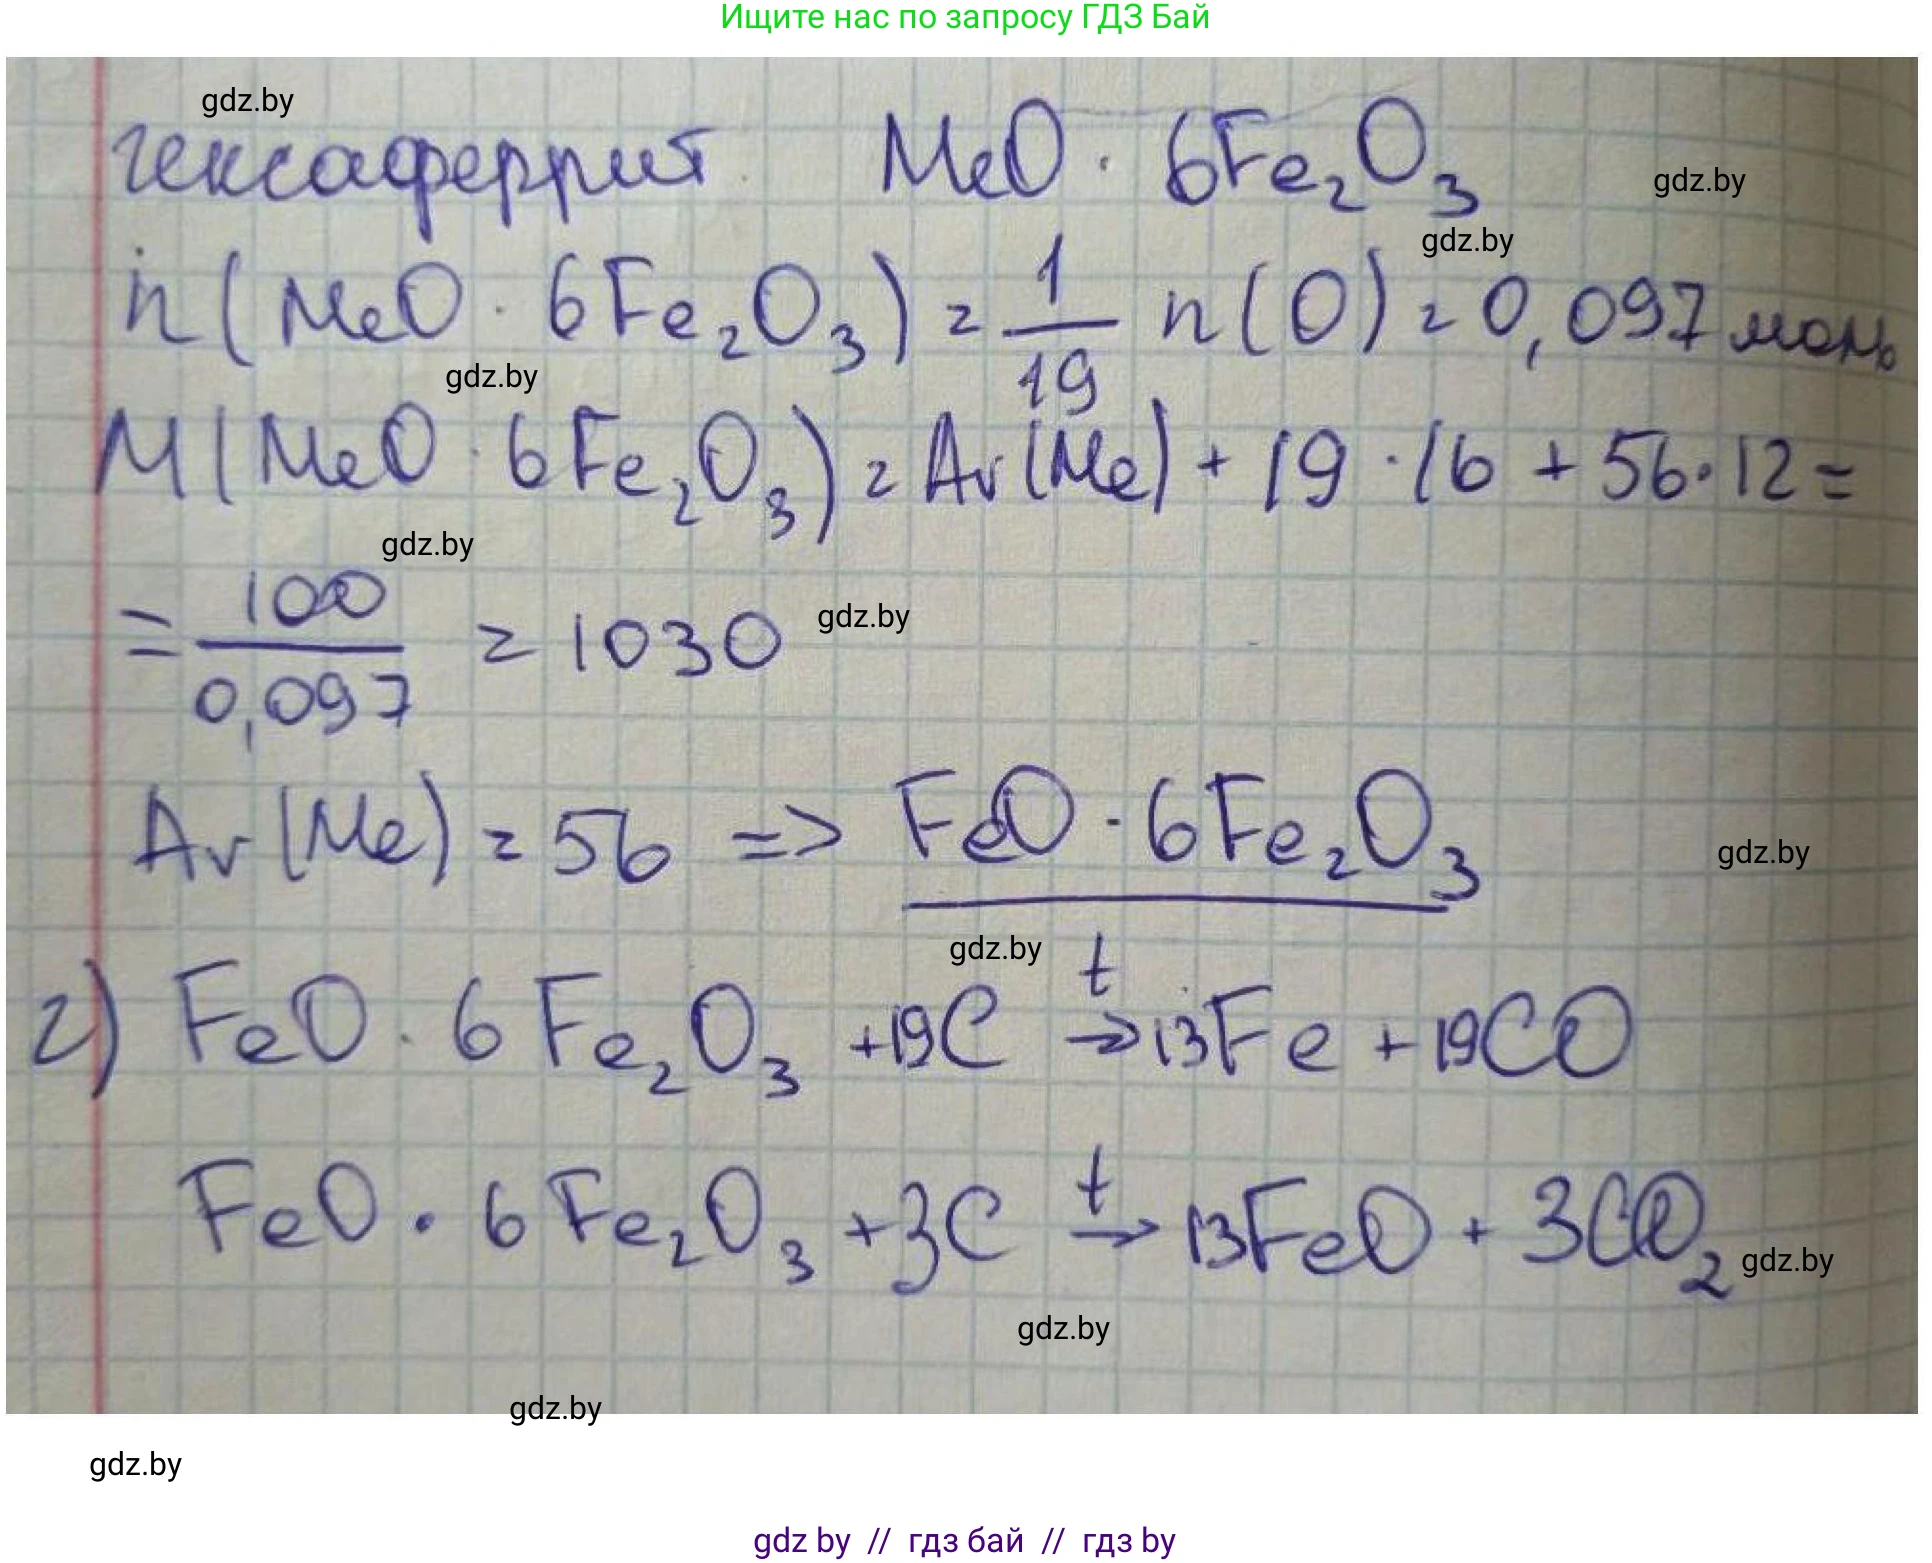 Ищите нас по запросу ГДЗ Бай
gdz.by
гексаферрит MeO · 6Fe₂O₃
gdz.by
gdz.by
n(MeO · 6Fe₂O₃) = 1/19 n(O) = 0,097 моль
gdz.by
M(MeO · 6Fe₂O₃) = Ar(Me) + 19 · 16 + 56 · 12 =
gdz.by
= 100/0,097 = 1030
gdz.by
Ar(Me) = 56 => FeO · 6Fe₂O₃
gdz.by
gdz.by
г) FeO · 6Fe₂O₃ + 19C t→ 13Fe + 19CO
FeO · 6Fe₂O₃ + 3C t→ 13FeO + 3CO₂
gdz.by
gdz.by
gdz.by
gdz.by
gdz by // гдз бай // гдз by